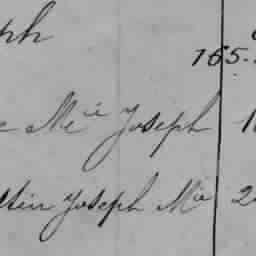 ph
165.
Mie Joseph
ttin Joseph Mie 2